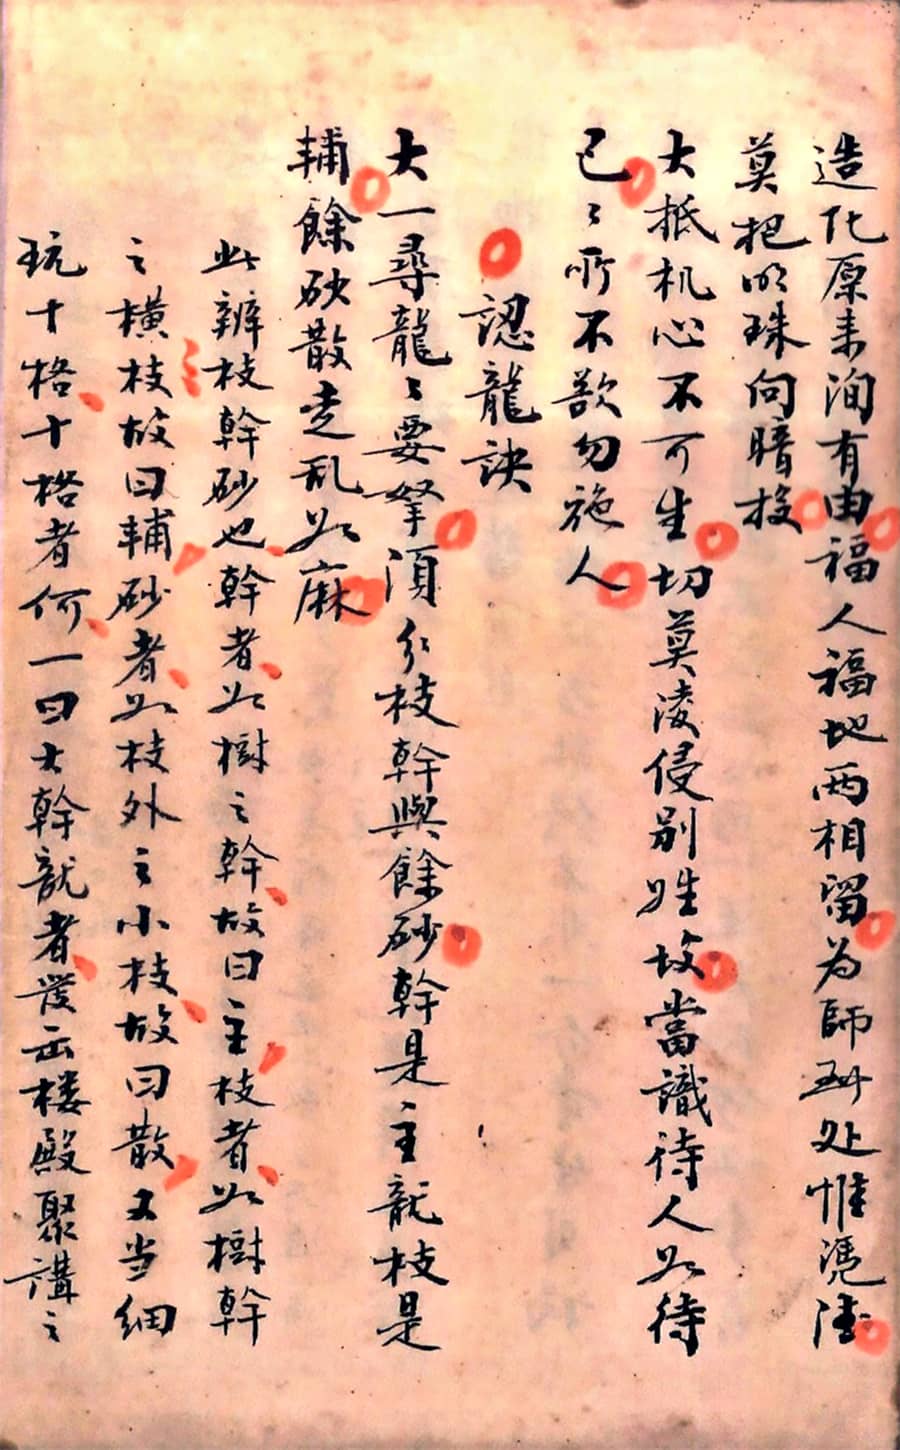 造化原来洵有由福人福地两相留为師到处惟凭德
莫把明珠向暗投
大抵机心不可生切莫凌侵别姓坟當識待人如待
己〻所不欲勿施人
認龍訣
大一尋龍〻要拏須分枝幹與餘砂幹是主龍枝是
輔餘砂散走乱如麻
此辦枝幹砂也幹者如樹之幹故曰主枝者如樹幹
之横枝故曰輔砂者如枝外之小枝故曰散又当細
玩十格十格者何一曰大幹龍者發出楼殿聚講之